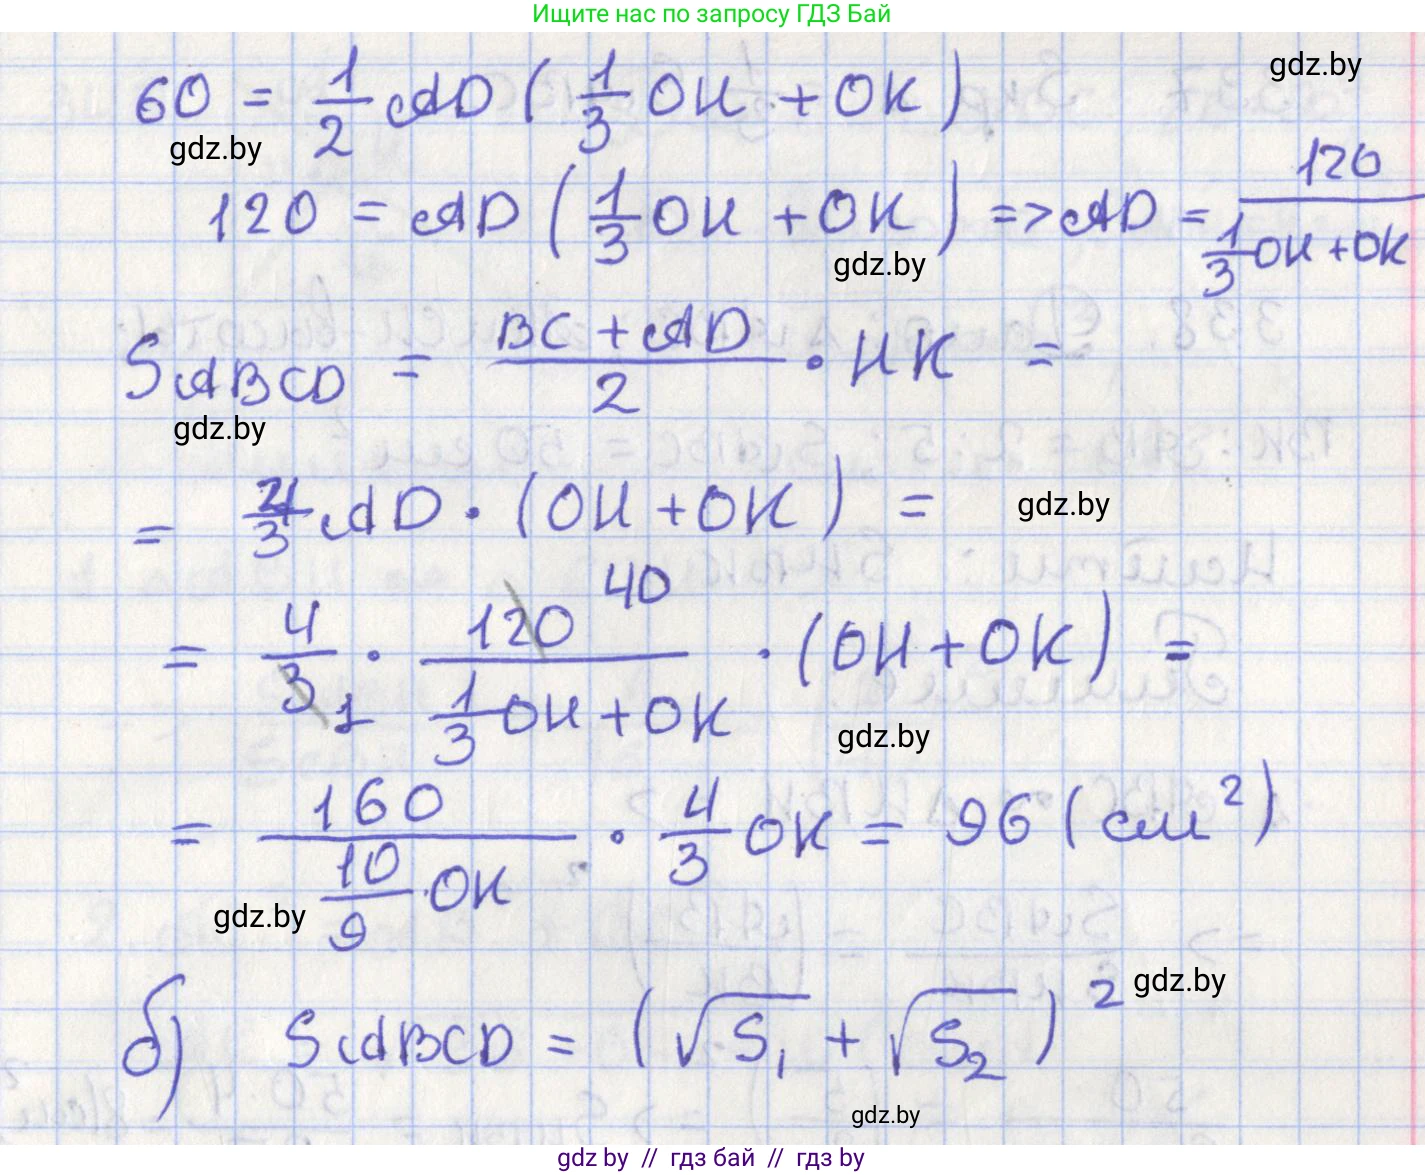 Ищите нас по запросу ГДЗ Бай
gdz.by
60 = 1/2 AD (1/3 OH + OK)
gdz.by
120 = AD (1/3 OH + OK) => AD = 120 / (1/3 OH + OK)
gdz.by
S ABCD = (BC + AD)/2 · HK =
gdz.by
= 4/3 AD · (OH + OK) =
gdz.by
= 4/3 1 · 120 40 / (1/3 OH + OK) · (OH + OK) =
gdz.by
= 160 / (10/9 · OK) · 4/3 OK = 96 (см²)
gdz.by
gdz.by
б) S ABCD = (√S₁ + √S₂)²
gdz.by
gdz by // гдз бай // gdz by